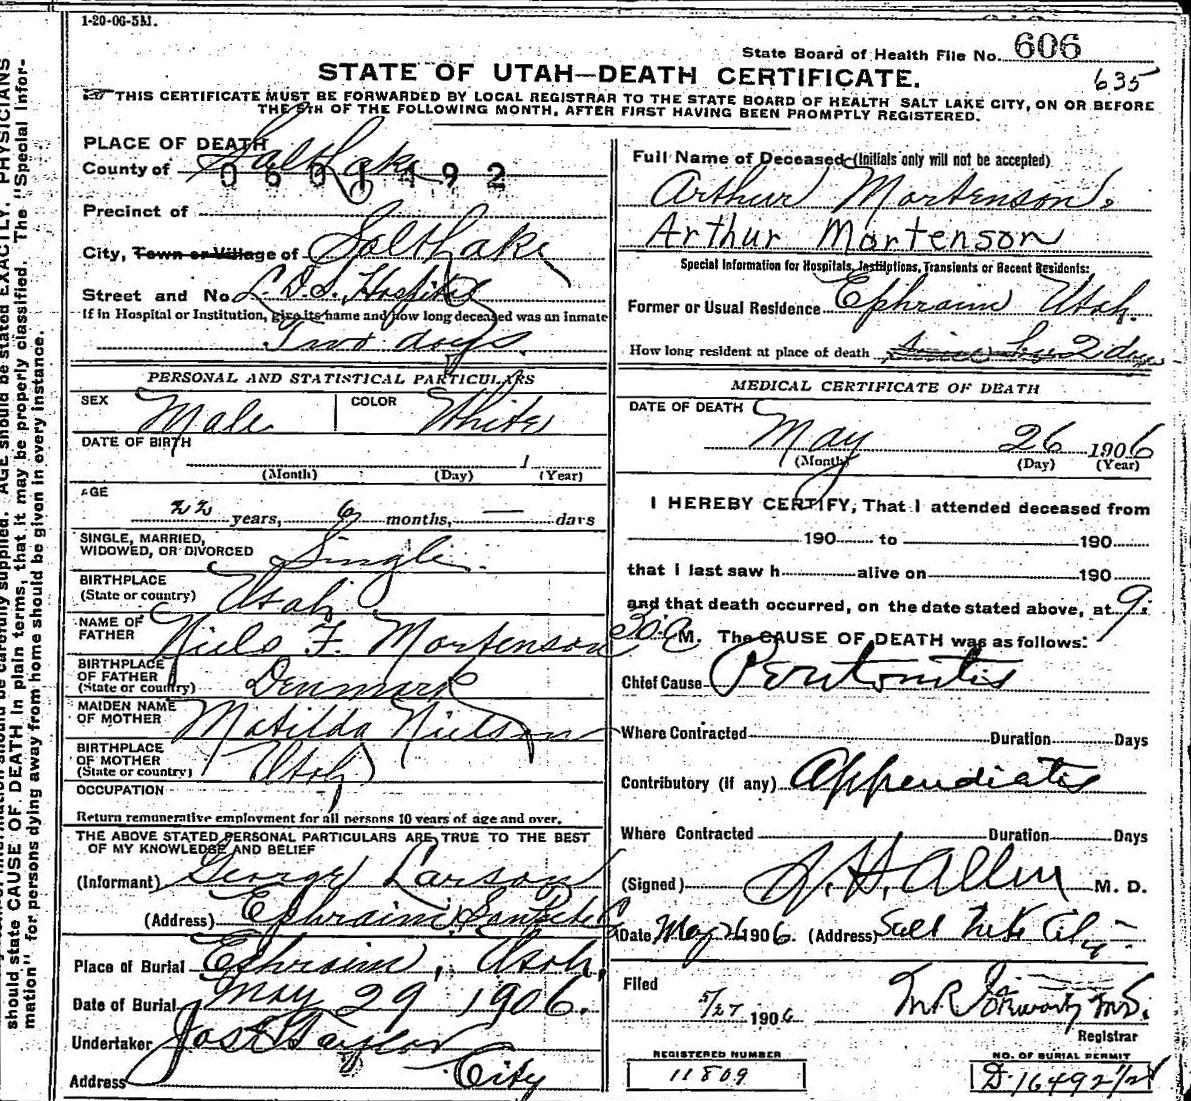 1-20-06-5M.
State Board of Health File No. 606
635
STATE OF UTAH—DEATH CERTIFICATE.
THIS CERTIFICATE MUST BE FORWARDED BY LOCAL REGISTRAR TO THE STATE BOARD OF HEALTH SALT LAKE CITY, ON OR BEFORE
THE 5TH OF THE FOLLOWING MONTH, AFTER FIRST HAVING BEEN PROMPTLY REGISTERED.
PLACE OF DEATH
County of Salt Lake
0601492
Precinct of
City, Town or Village of Salt Lake
Street and No. L.D.S. Hospital
If in Hospital or Institution, give its name and how long deceased was an inmate
Two days.
PERSONAL AND STATISTICAL PARTICULARS
SEX Male COLOR White
DATE OF BIRTH
1
(Month) (Day) (Year)
AGE
22 years, 6 months, — days
SINGLE, MARRIED,
WIDOWED, OR DIVORCED Single.
BIRTHPLACE
(State or country) Utah
NAME OF
FATHER Niels F. Mortenson
BIRTHPLACE
OF FATHER
(State or country) Denmark
MAIDEN NAME
OF MOTHER Matilda Nielson
BIRTHPLACE
OF MOTHER
(State or country) Utah
OCCUPATION
Return remunerative employment for all persons 10 years of age and over.
THE ABOVE STATED PERSONAL PARTICULARS ARE TRUE TO THE BEST
OF MY KNOWLEDGE AND BELIEF
(Informant) George Larson
(Address) Ephraim, Sanpete Co
Place of Burial Ephraim, Utah,
Date of Burial May 29, 1906.
Undertaker Jos E Taylor
Address City
Full Name of Deceased (Initials only will not be accepted)
Arthur Mortenson.
Arthur Mortenson
Special Information for Hospitals, Institutions, Transients or Recent Residents:
Former or Usual Residence Ephraim Utah.
How long resident at place of death 2 days
MEDICAL CERTIFICATE OF DEATH
DATE OF DEATH
May 26 1906
(Month) (Day) (Year)
I HEREBY CERTIFY, That I attended deceased from
190 to 190
that I last saw h alive on 190
and that death occurred, on the date stated above, at 9:
30 A M. The CAUSE OF DEATH was as follows:
Chief Cause Peritonitis
Where Contracted Duration Days
Contributory (if any) Appendicitis
Where Contracted Duration Days
(Signed) S. H. Allen M. D.
Date May 26 1906. (Address) Salt Lake City
Filed
5/27 1906
Registrar
REGISTERED NUMBER
11809
NO. OF BURIAL PERMIT
D-16492 1/2
AGE should be stated EXACTLY. PHYSICIANS
should state CAUSE OF DEATH in plain terms, that it may be properly classified. The "Special Infor-
mation" for persons dying away from home should be given in every instance.